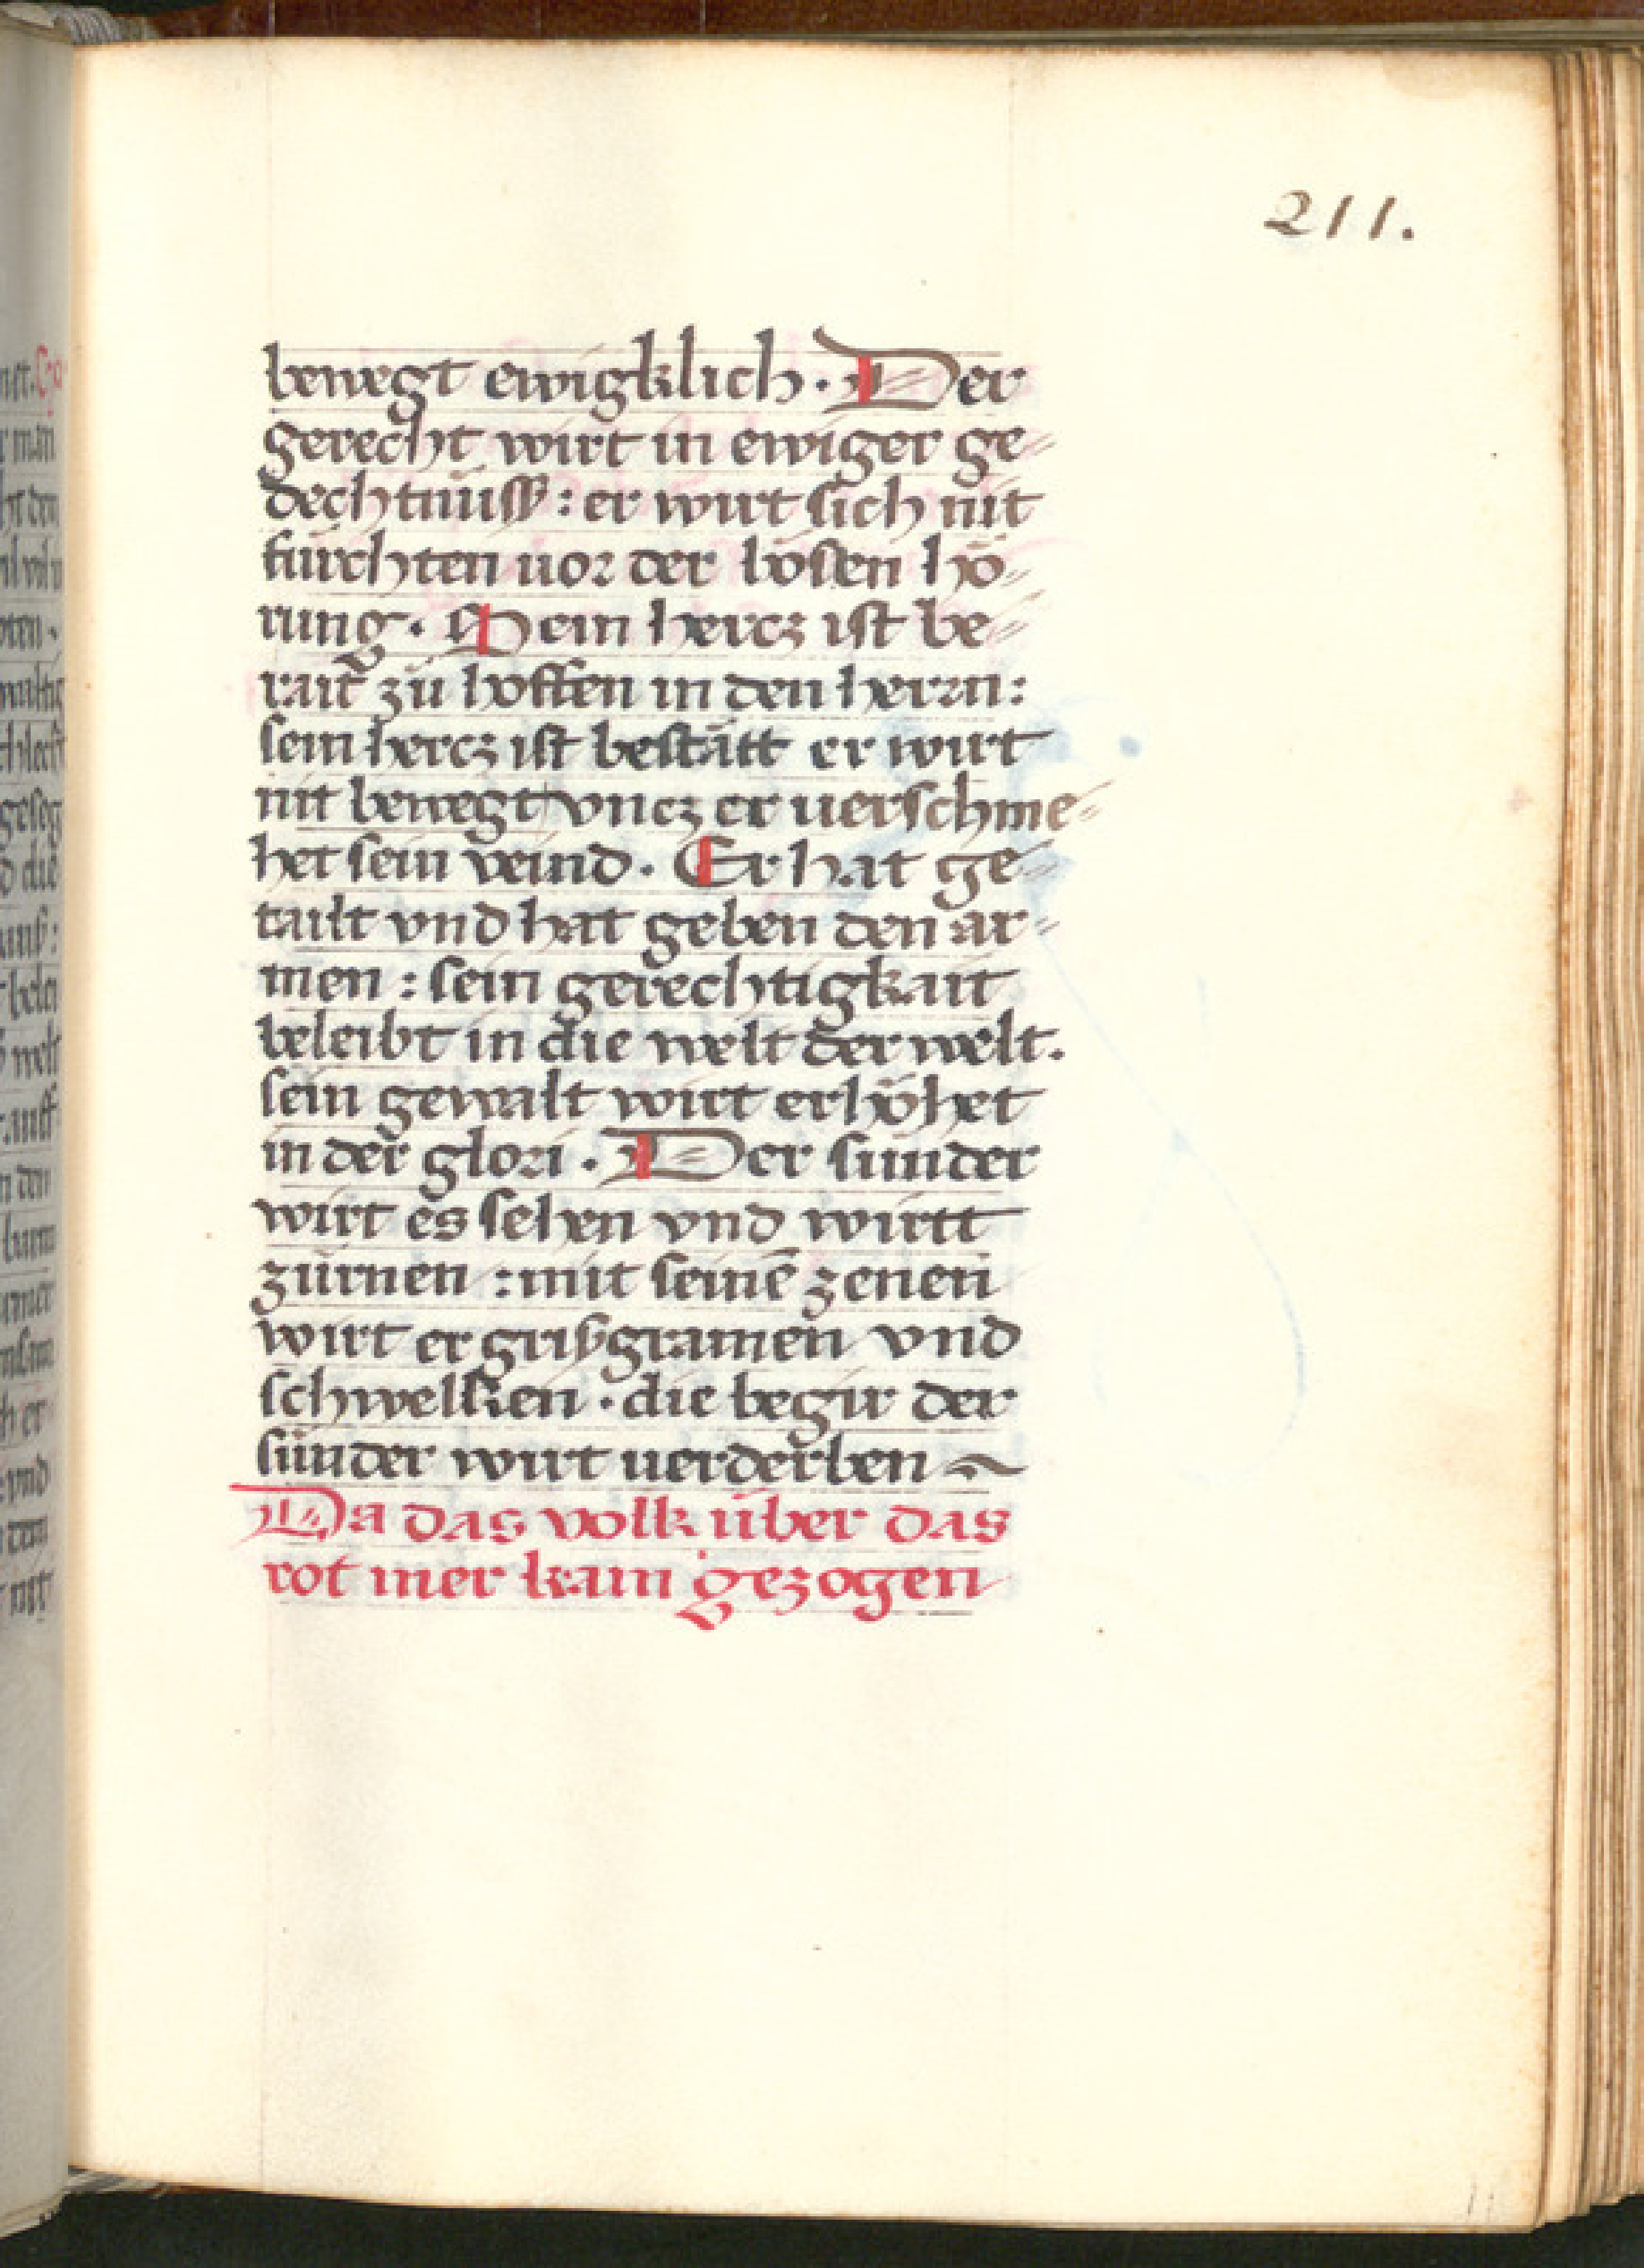 211.
bewegt ewigklich · Der
gerecht wirt in ewiger ge-
dechtnüss : er wirt sich nit
fürchten uor der bösen hö-
rung · Sein hercz ist be-
rait zů hoffen in den herrn :
sein hercz ist bestätt er wirt
nit bewegt vncz er uerschme-
het sein veind · Er hat ge-
tailt vnd hat geben den ar-
men : sein gerechtigkait
beleibt in die welt der welt.
sein gewalt wirt erhöhet
in der glori · Der sünder
wirt es sehen vnd wirtt
zürnen : mit seinē zenen
wirt er grißgramen vnd
schwelken · die begir der
sünder wirt uerderben
Da das volk über das
rot mer kam gezogen